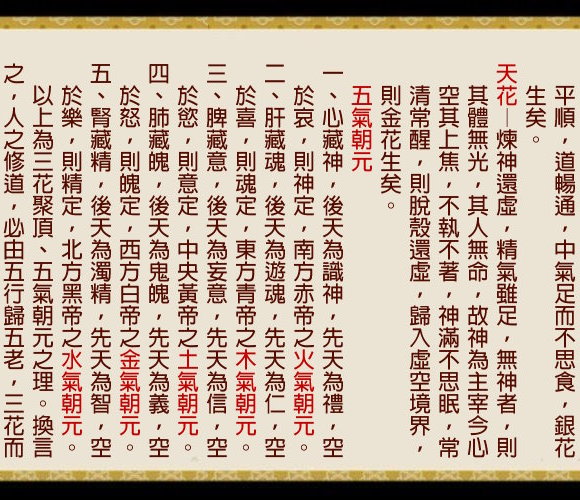 平順，道暢通，中氣足而不思食，銀花
生矣。
天花─煉神還虛，精氣雖足，無神者，則
其體無光，其人無命，故神為主宰今心
空其上焦，不執不著，神滿不思眠，常
清常醒，則脫殼還虛，歸入虛空境界，
則金花生矣。
五氣朝元
一、心藏神，後天為識神，先天為禮，空
於哀，則神定，南方赤帝之火氣朝元。
二、肝藏魂，後天為遊魂，先天為仁，空
於喜，則魂定，東方青帝之木氣朝元。
三、脾藏意，後天為妄意，先天為信，空
於慾，則意定，中央黃帝之土氣朝元。
四、肺藏魄，後天為鬼魄，先天為義，空
於怒，則魄定，西方白帝之金氣朝元。
五、腎藏精，後天為濁精，先天為智，空
於樂，則精定，北方黑帝之水氣朝元。
以上為三花聚頂、五氣朝元之理。換言
之，人之修道，必由五行歸五老，三花而